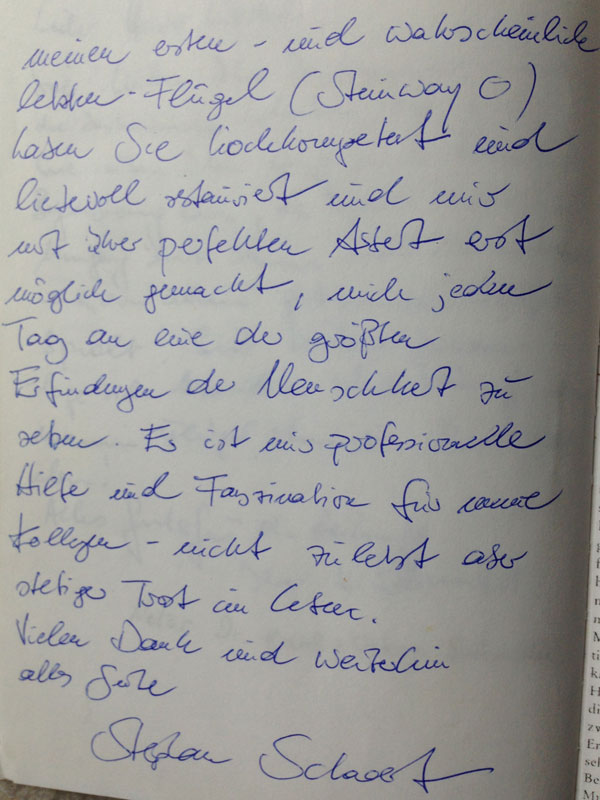 meinen ersten - und wahrscheinlich
letzten - Flügel (Steinway O)
haben Sie hochkompetent und
liebevoll restauriert und mir
mit Ihrer perfekten Arbeit erst
möglich gemacht, mich jeden
Tag an eine der größten
Erfindungen der Menschheit zu
setzen. Er ist mir professionelle
Hilfe und Faszination für meine
Kollegen - nicht zuletzt aber
stetiger Trost im Leben.
Vielen Dank und weiterhin
alles Gute
Stephan